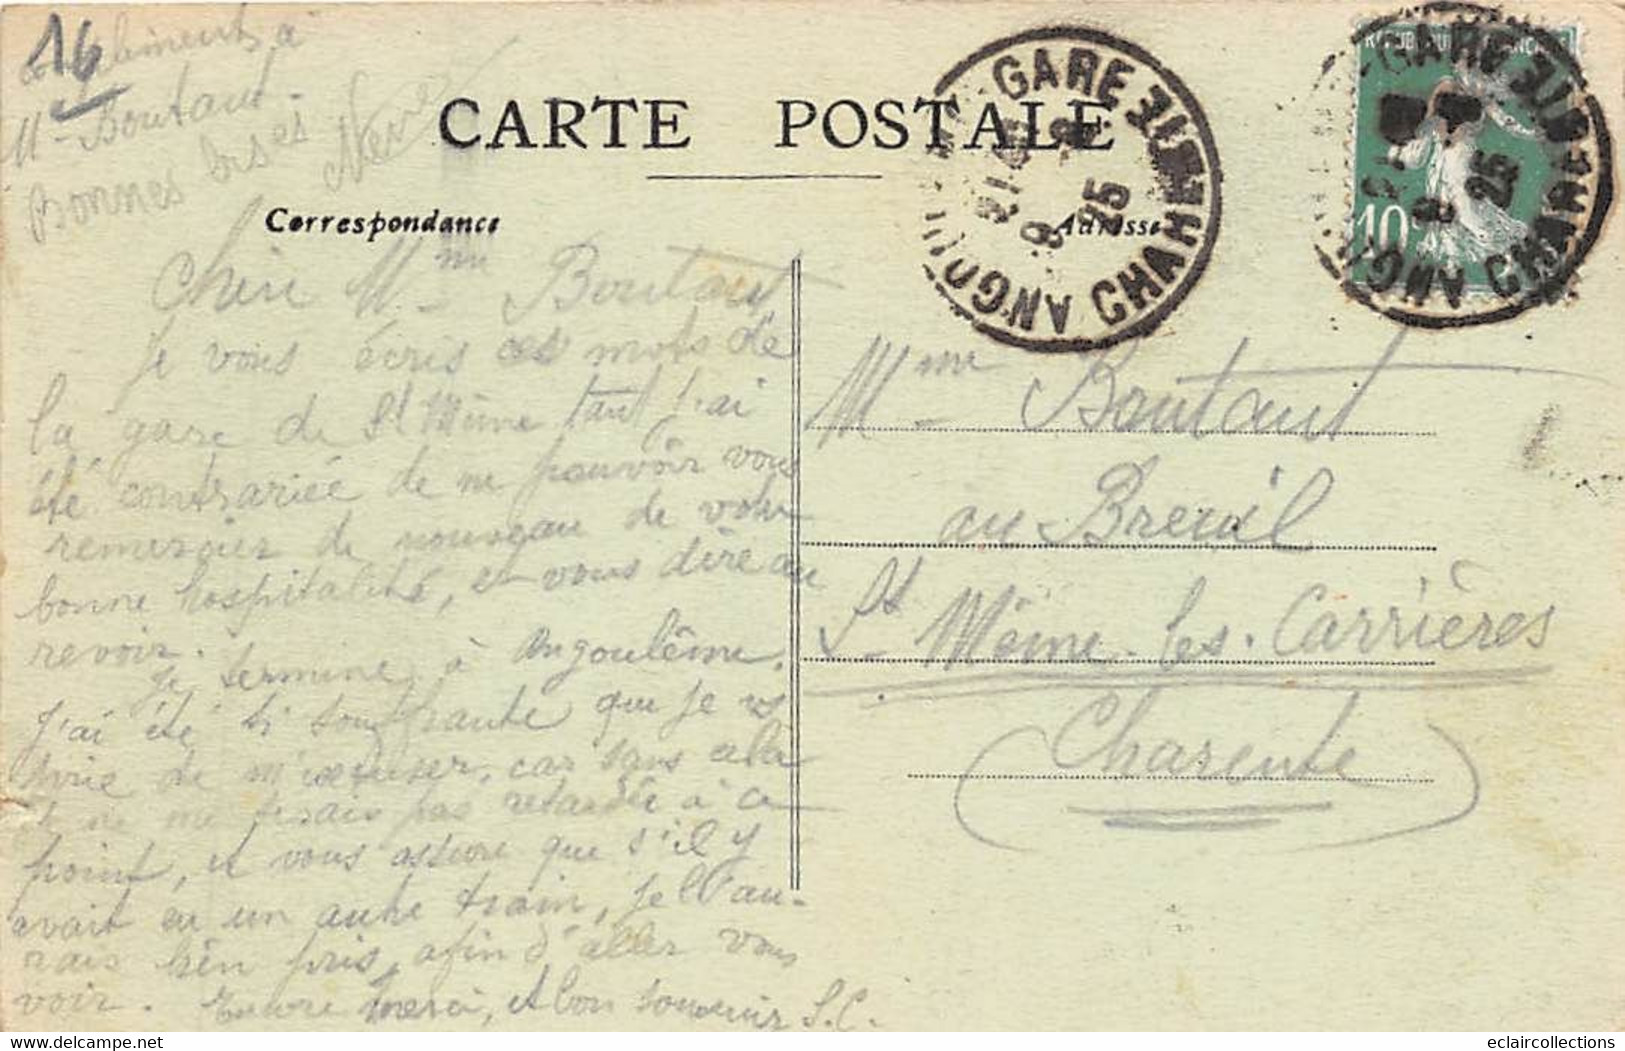 16
Compliments à
Mme Boutaut.
Bonnes bises
CARTE POSTALE
Correspondance
Adresse
ANGOULÊME-GARE CHARENTE
21 45
8 25
RÉPUBLIQUE FRANÇAISE
10c
ANGOULÊME-GARE CHARENTE
8 25
Chère Mme Boutaut
Je vous écris ces mots de
la gare de St Même tant j'ai
été contrariée de ne pouvoir vous
remercier de nouveau de votre
bonne hospitalité, et vous dire au
revoir.
Je termine à Angoulême.
J'ai été si souffrante que je vs
prie de m'excuser, car sans cela
je ne me serais pas retardée à ce
point, et vous assure que s'il y
avait eu un autre train, je l'au-
rais bien pris, afin d'aller vous
voir. Encore merci, et bon souvenir S.C.
Mme Boutaut
au Breuil
St Même-les-Carrières
(Charente)
eclaircollections